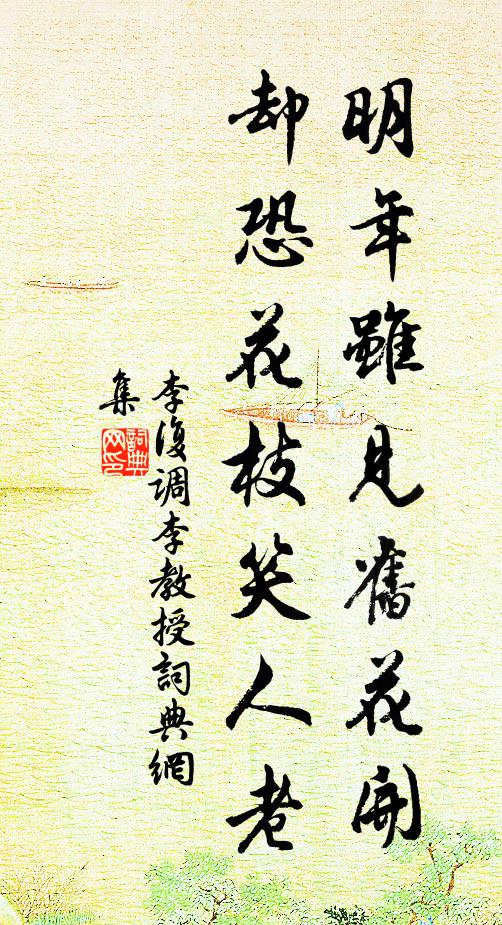 明年雖見舊花開
却恐花枝笑人老
李復調李教授詞典網
集
詞典網印